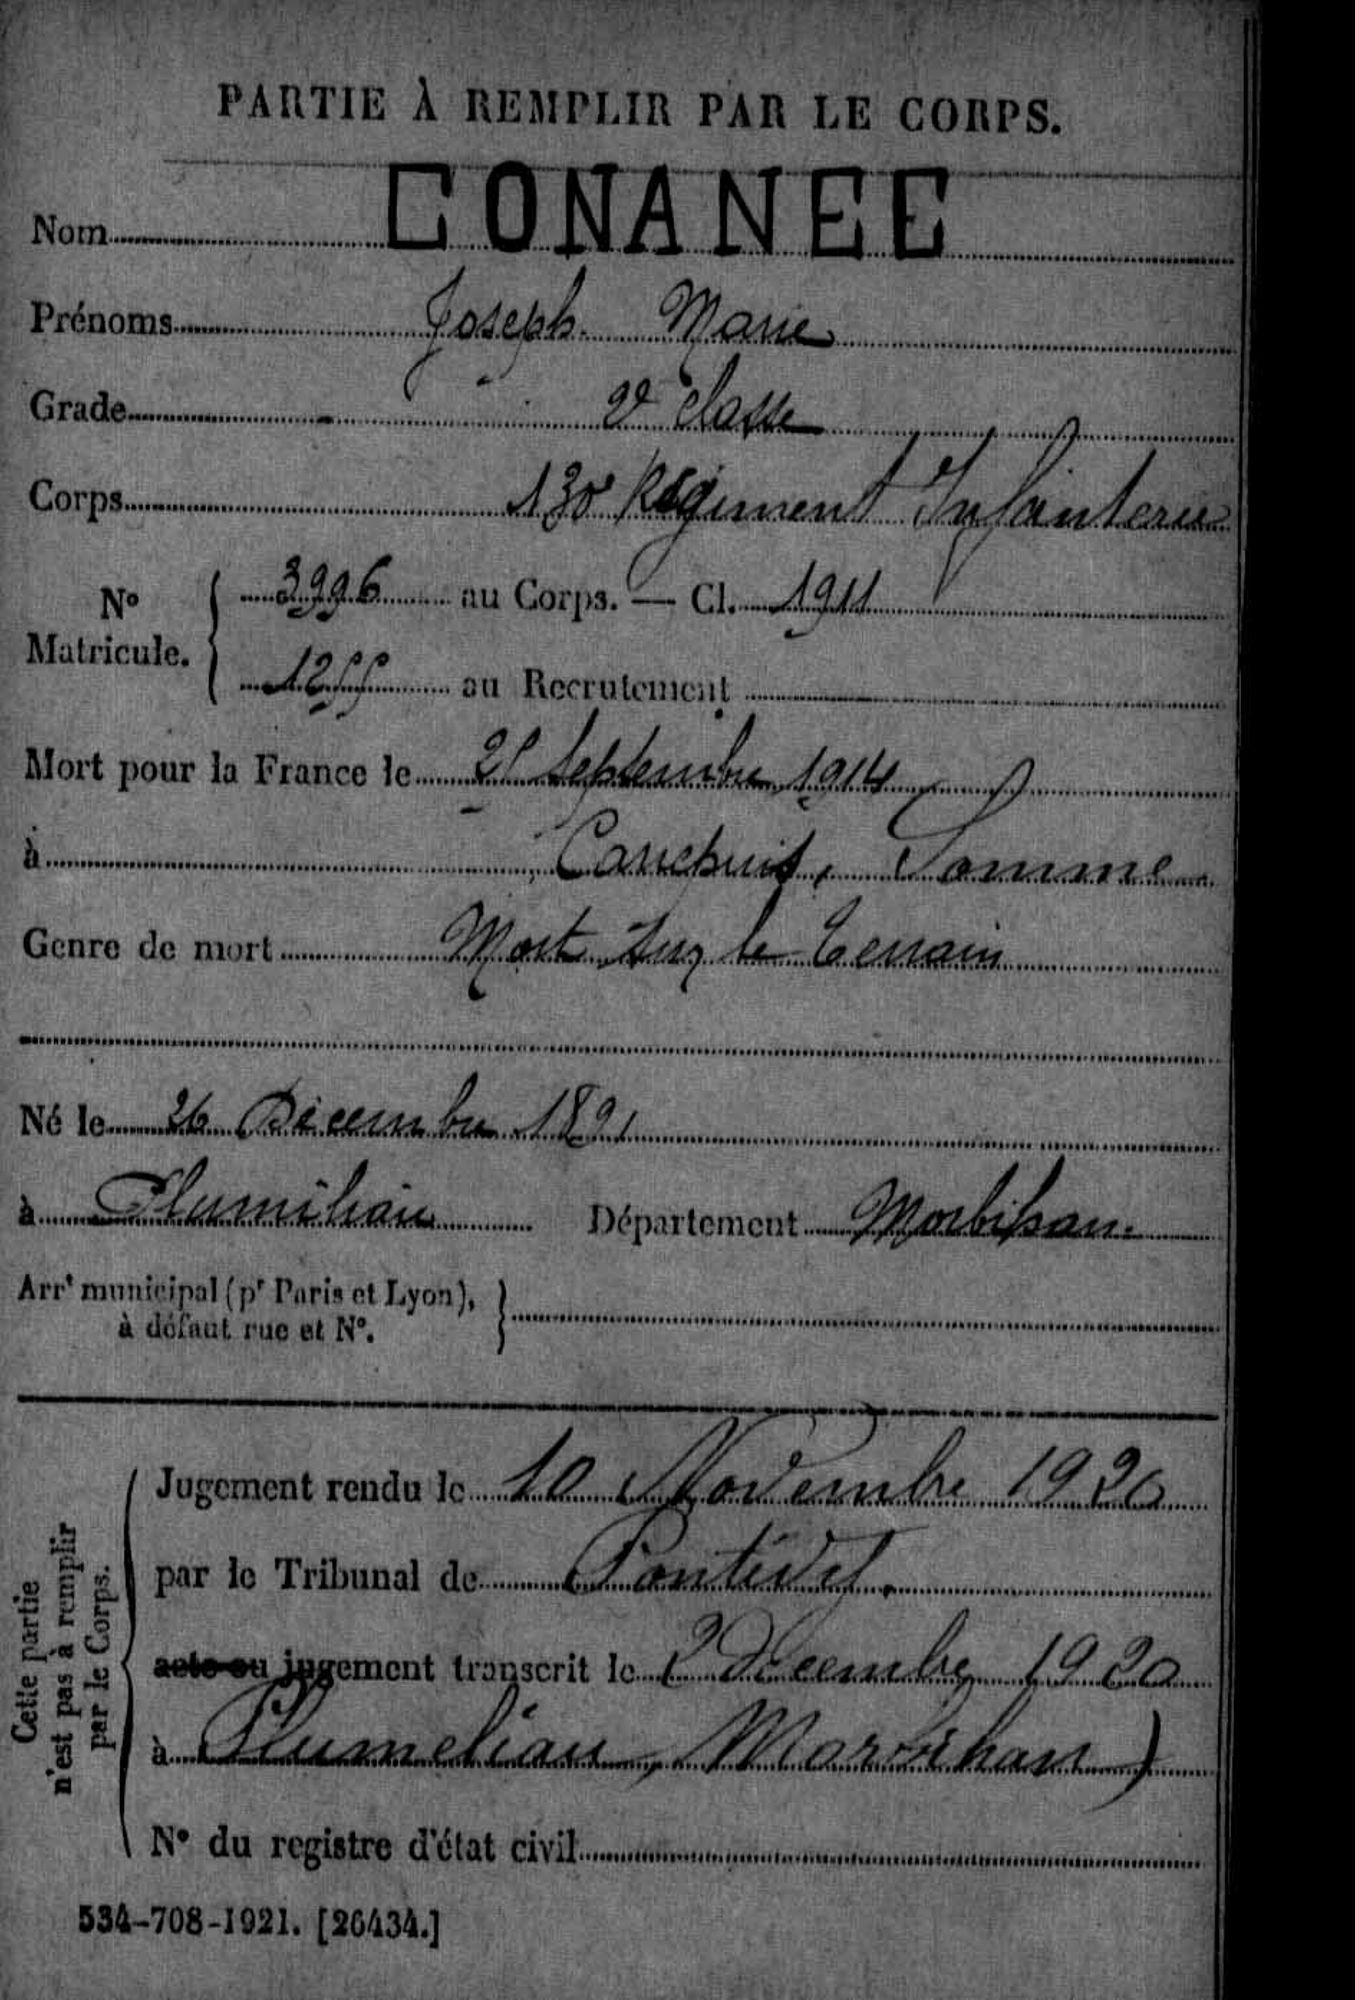 PARTIE À REMPLIR PAR LE CORPS.
Nom CONANEC
Prénoms Joseph Marie
Grade 2e classe
Corps 130e Régiment Infanterie
N° Matricule. 3996 au Corps. — Cl. 1911
1255 au Recrutement
Mort pour la France le 25 Septembre 1914
à Carrépuits, Somme
Genre de mort Mort sur le terrain
Né le 26 Décembre 1891
à Plumiliau Département Morbihan.
Arrt municipal (pr Paris et Lyon),
à défaut rue et N°.
Cette partie
n'est pas à remplir
par le Corps.
Jugement rendu le 10 Novembre 1920
par le Tribunal de Pontivy.
acte ou jugement transcrit le 2 Décembre 1920
à Plumeliau, Morbihan)
N° du registre d'état civil
534-708-1921. [26434.]